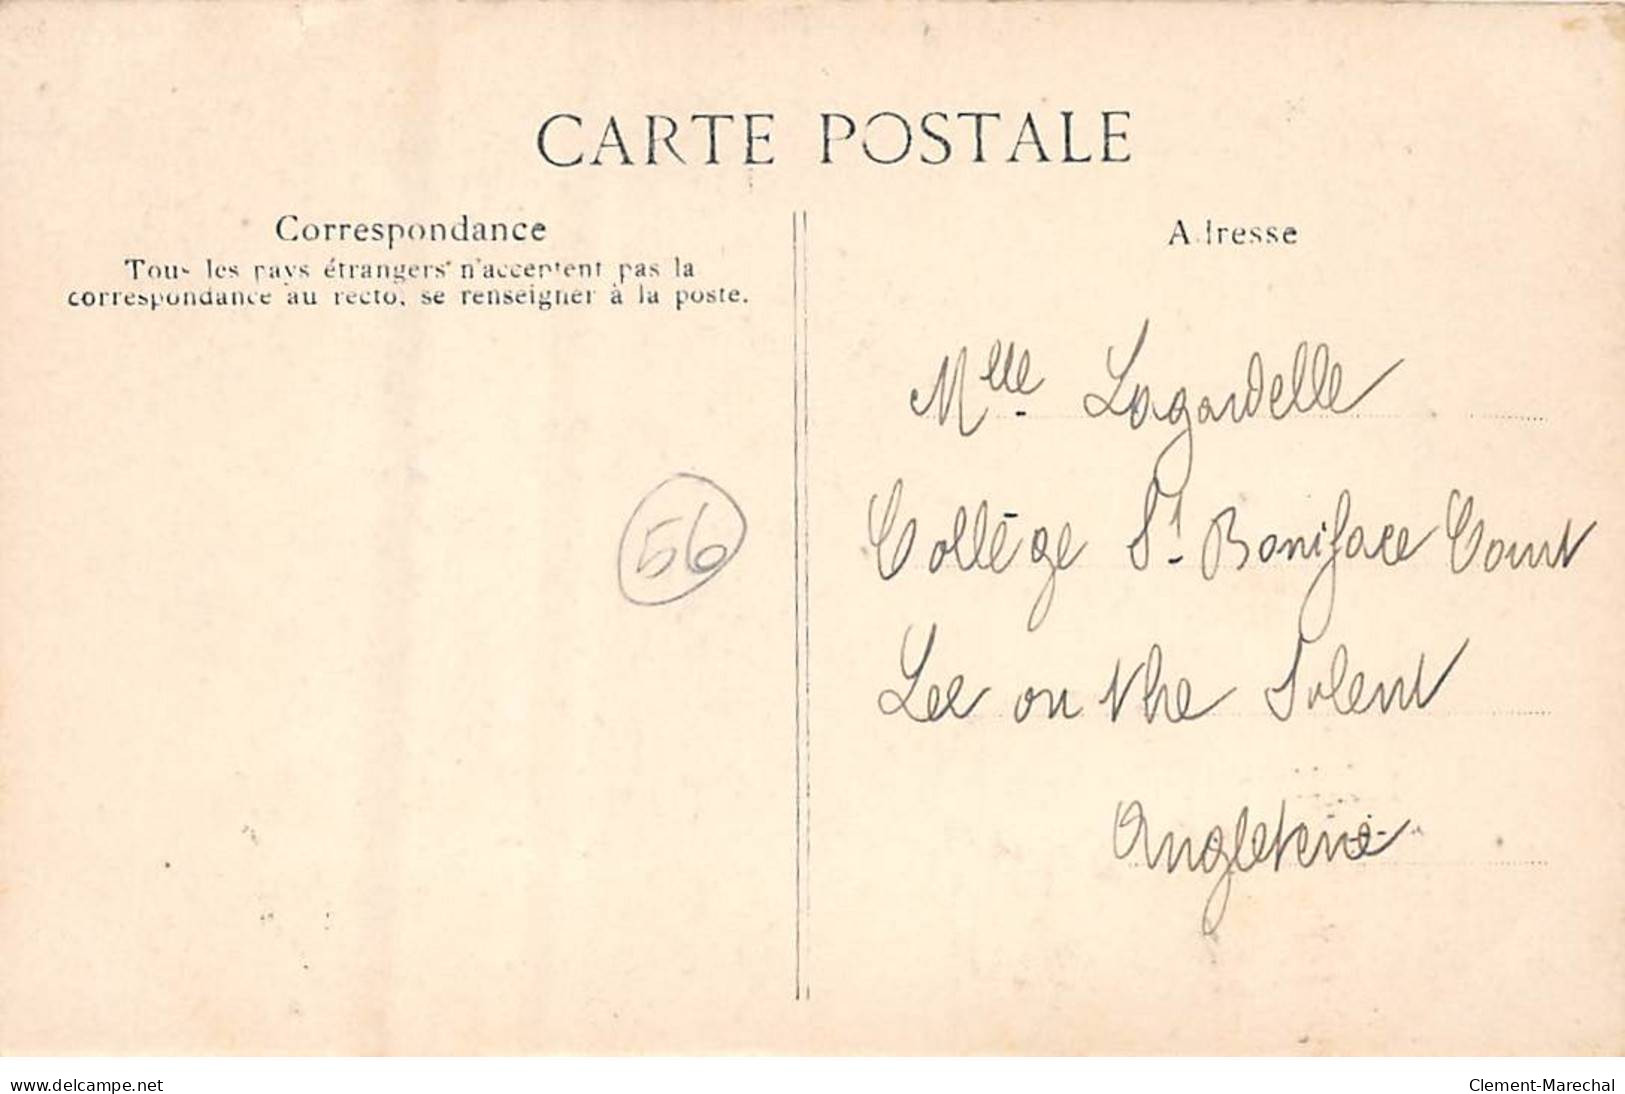 CARTE POSTALE
Correspondance
Tous les pays étrangers n'acceptent pas la
correspondance au recto, se renseigner à la poste.
Adresse
Mlle Lagardelle
Collège St Boniface Court
Lee on the Solent
Angleterre
56
www.delcampe.net
Clement-Marechal